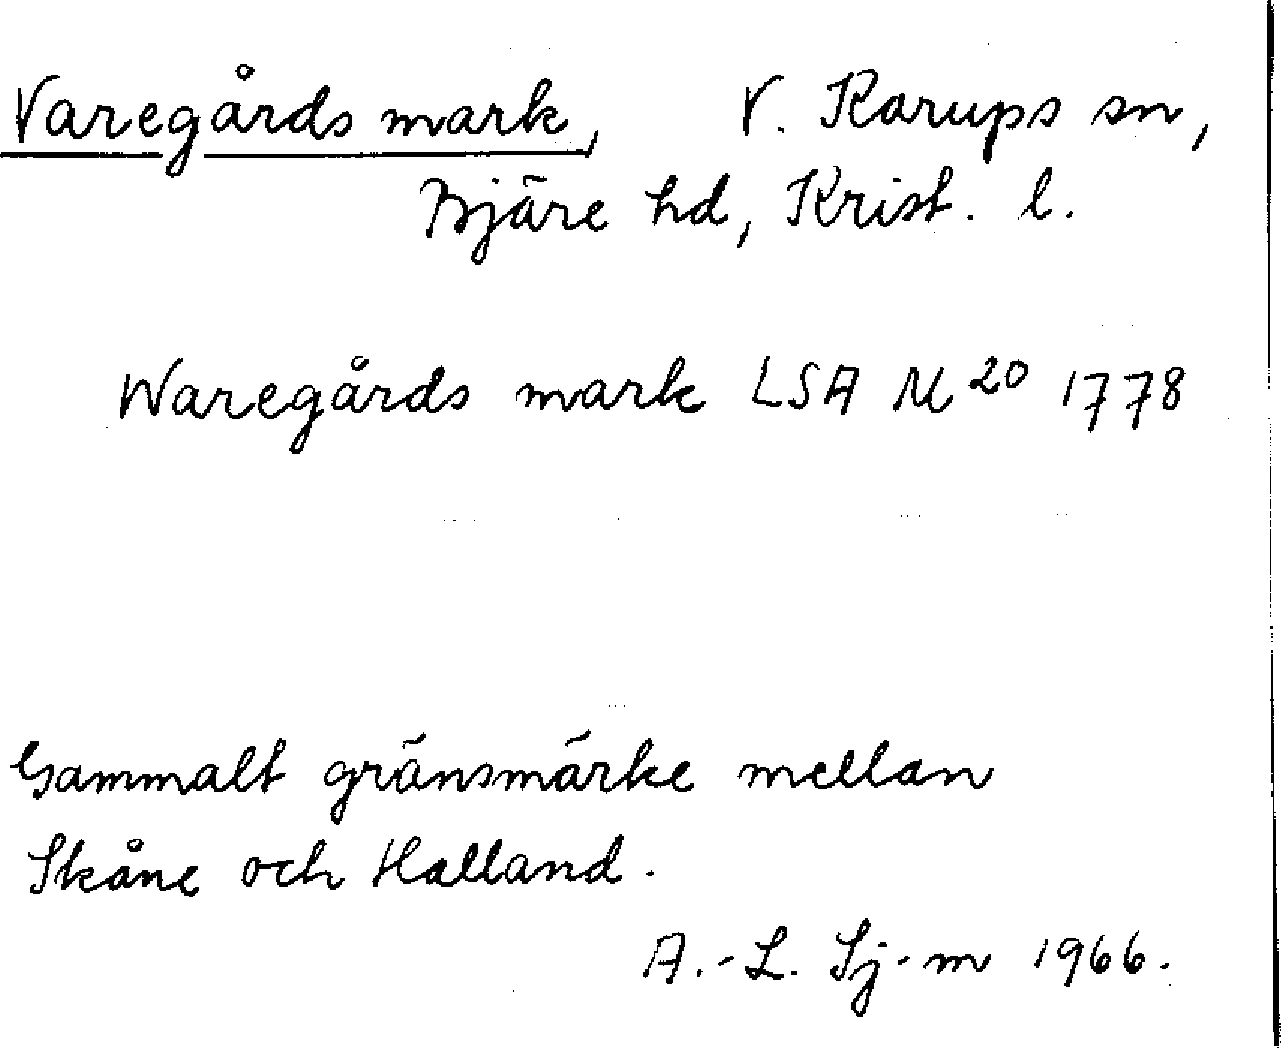 Varegårds mark, V. Karups sn,
Bjäre hd, Krist. l.
Waregårds mark LSA M20 1778
Gammalt gränsmärke mellan
Skåne och Halland.
A.-L. Sj-m 1966.